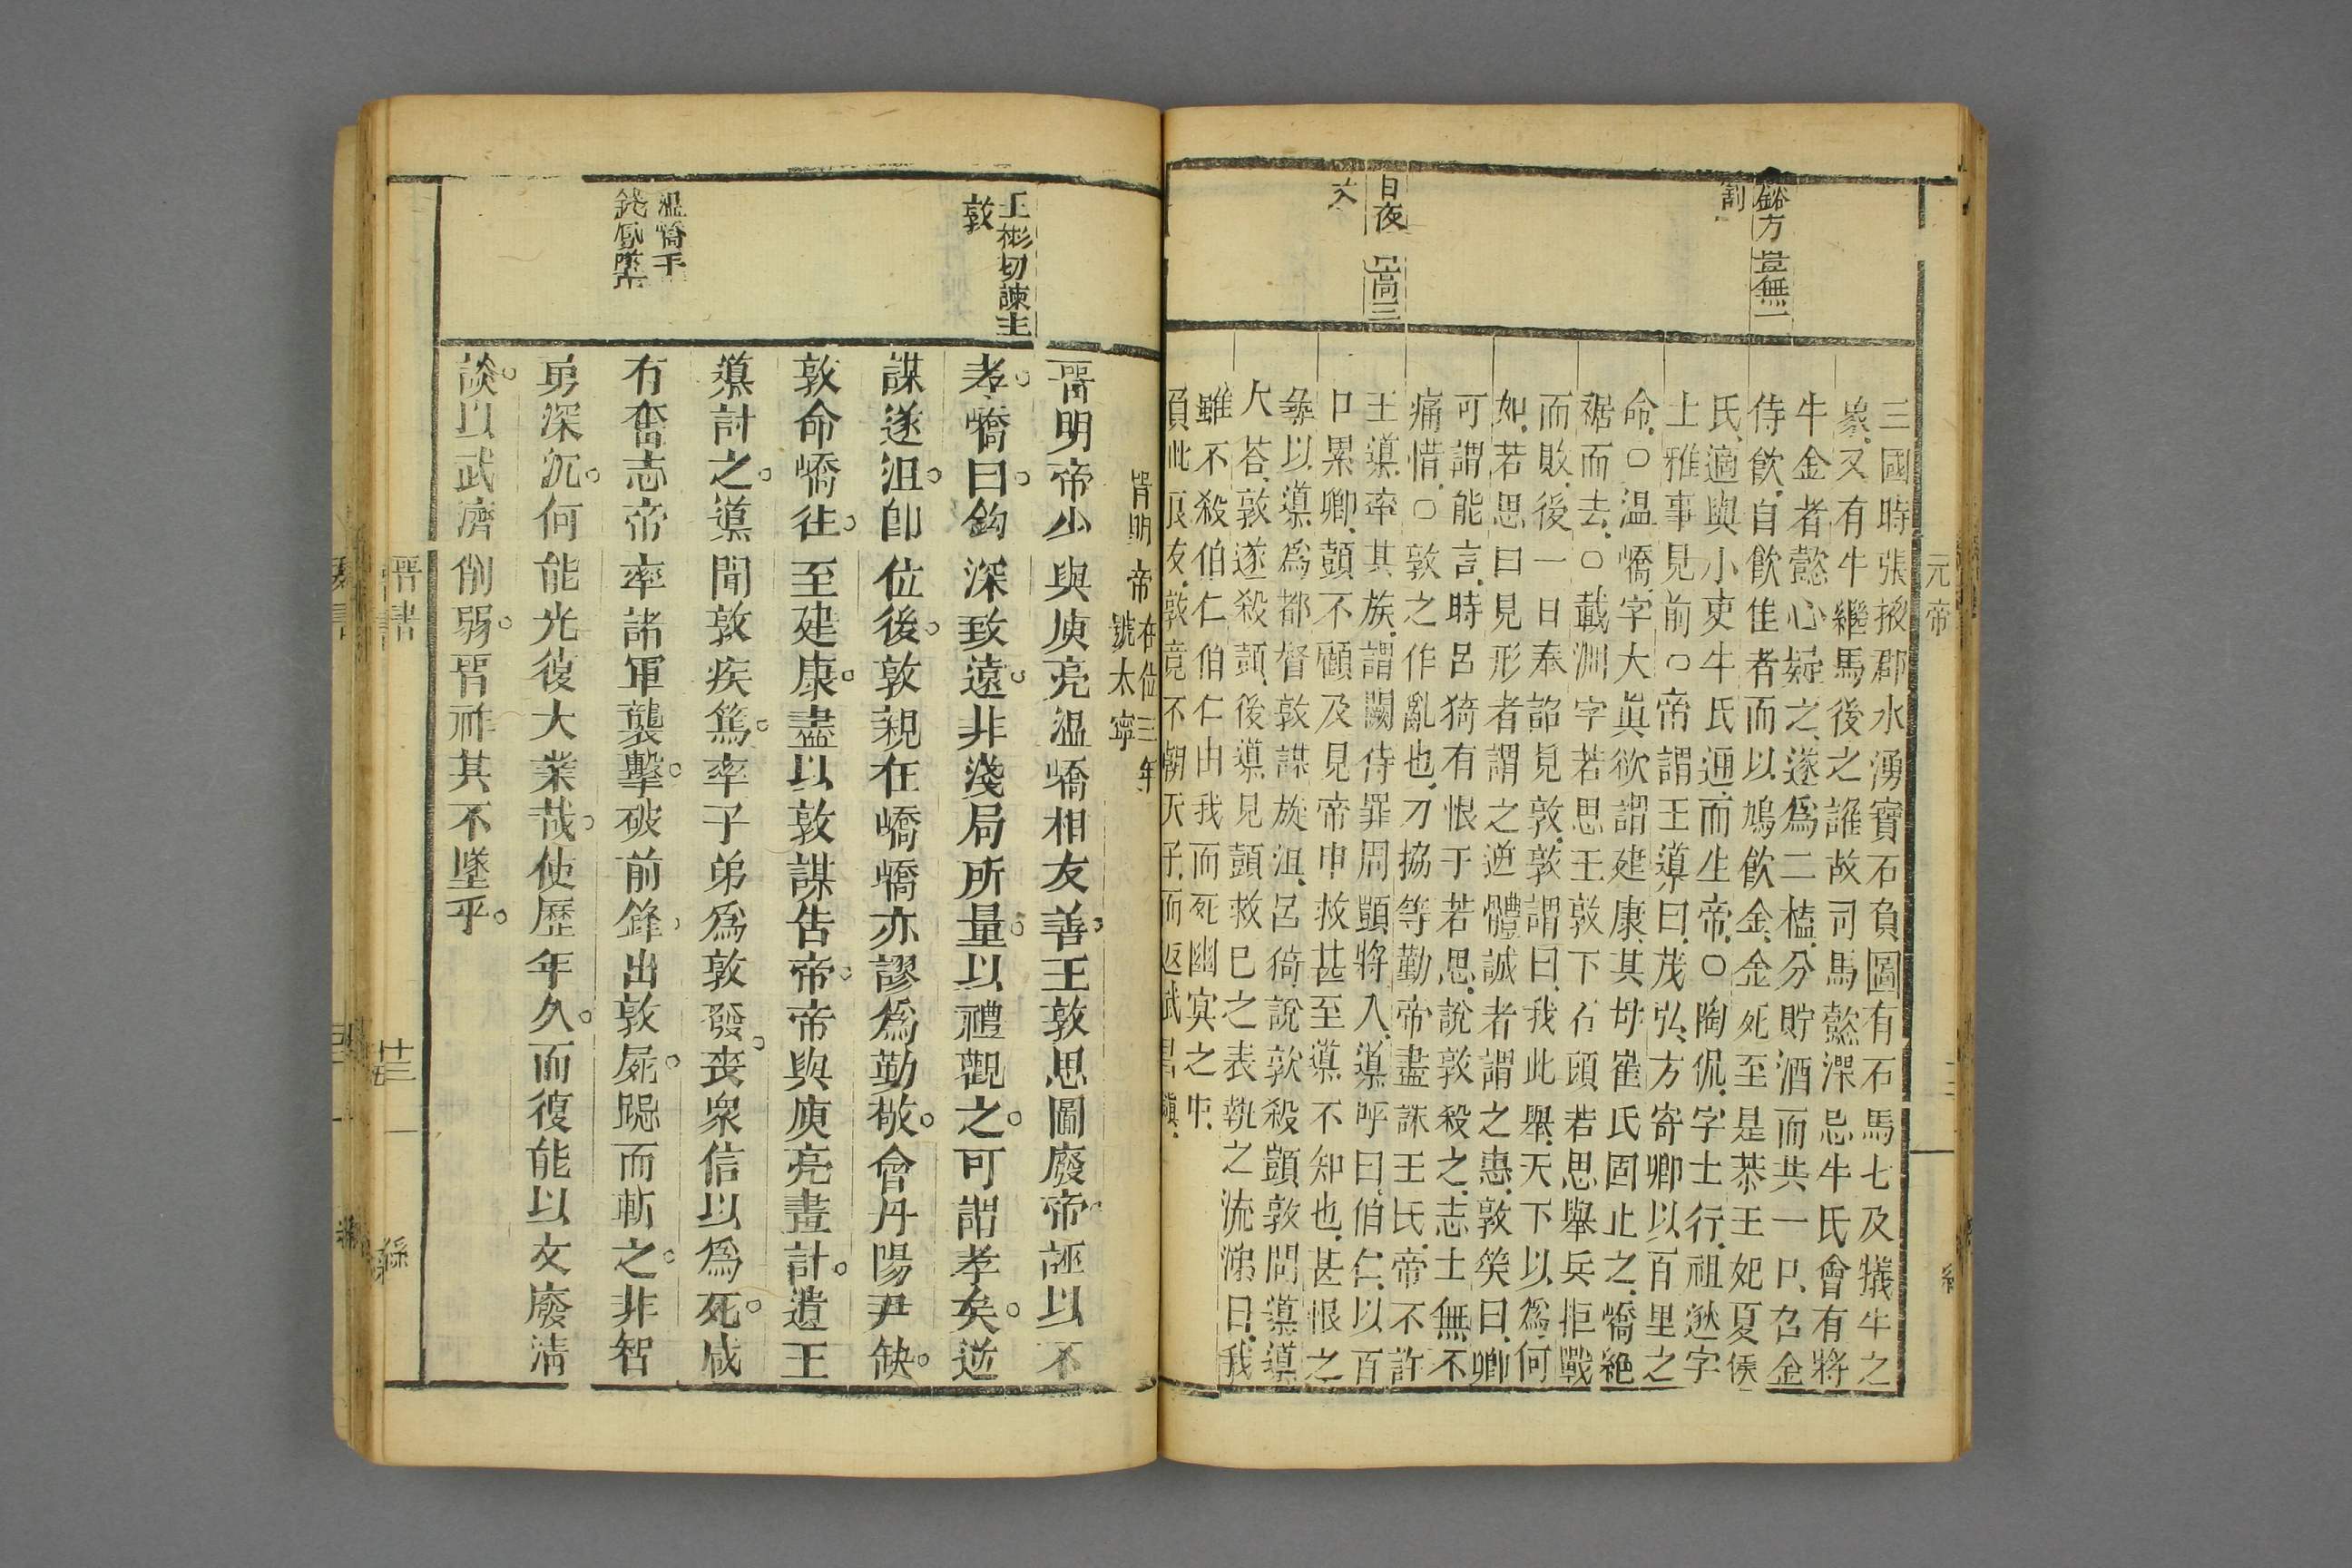 元帝
谿方 豈無一
割
日夜 口高三
大
三國時張掖郡水湧寶石負圖有石馬七及犧牛之
象又有牛繼馬後之讖故司馬懿深忌牛氏會有將
牛金者懿心疑之遂爲二榼分貯酒而共一口召金
侍飮自飮佳者而以鳩飮金金死至是恭王妃夏侯
氏適與小吏牛氏通而生帝○陶侃字士行祖逖字
士雅事見前○帝謂王導曰茂弘方寄卿以百里之
命○温嶠字大眞欲謂建康其母崔氏固止之嶠絶
裾而去○戴淵字若思王敦下石頭若思舉兵拒戰
而敗後一日奉詔見敦敦謂曰我此舉天下以爲何
如若思曰見形者謂之逆體誠者謂之忠敦笑曰卿
可謂能言時呂猗有恨于若思說敦殺之志士無不
痛惜○敦之作亂也刁協等勤帝盡誅王氏帝不許
王導率其族謂闕侍罪周顗將入導呼曰伯仁以百
口累卿顗不顧及見帝申救甚至導不知也甚恨之
彝以導爲都督敦謀旋沮呂猗說敦殺顗敦問導導
不荅敦遂殺顗後導見顗救已之表執之流涕曰我
雖不殺伯仁伯仁由我而死幽冥之中
負此良友敦竟不朝天子而返武昌鎮
晉明帝 在位三年
號太寧
王彬切諫主
敦
温嶠手
錢鳳墜
晋明帝少與庾亮温嶠相友善王敦思圖廢帝誣以不
孝嶠曰鈎深致遠非淺局所量以禮觀之可謂孝矣逆
謀遂沮卽位後敦親在嶠嶠亦謬爲勤敬會丹陽尹缺
敦命嶠往至建康盡以敦謀告帝帝與庾亮畫計遣王
導計之導聞敦疾篤率子弟爲敦發喪衆信以爲死咸
有奮志帝率諸軍襲擊破前鋒出敦屍跽而斬之非智
勇深沉何能光復大業哉使歷年久而復能以文廢淸
談以武濟削弱晋祚其不墜乎
晋書
廿三